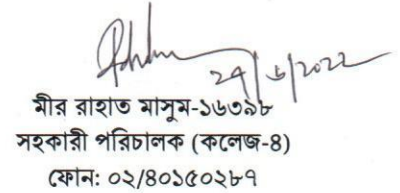 24/6/2022
মীর রাহাত মাসুম-১৬৩৯৮
সহকারী পরিচালক (কলেজ-৪)
ফোন: ০২/৪০১৫০২৮৭